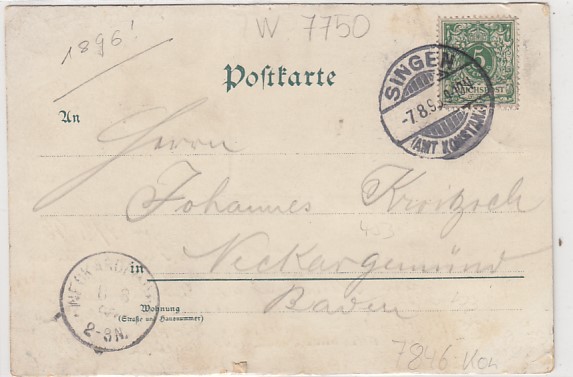 W 7750
1896!
Postkarte
5
REICHSPOST
SINGEN
-7.8.9
(AMT KONSTANZ)
An
Herrn
Johannes
453
in Neckargemünd
Baden
Wohnung
(Straße und Hausnummer)
NECKARGEMÜND
8 8
2-3N.
7846 Kon